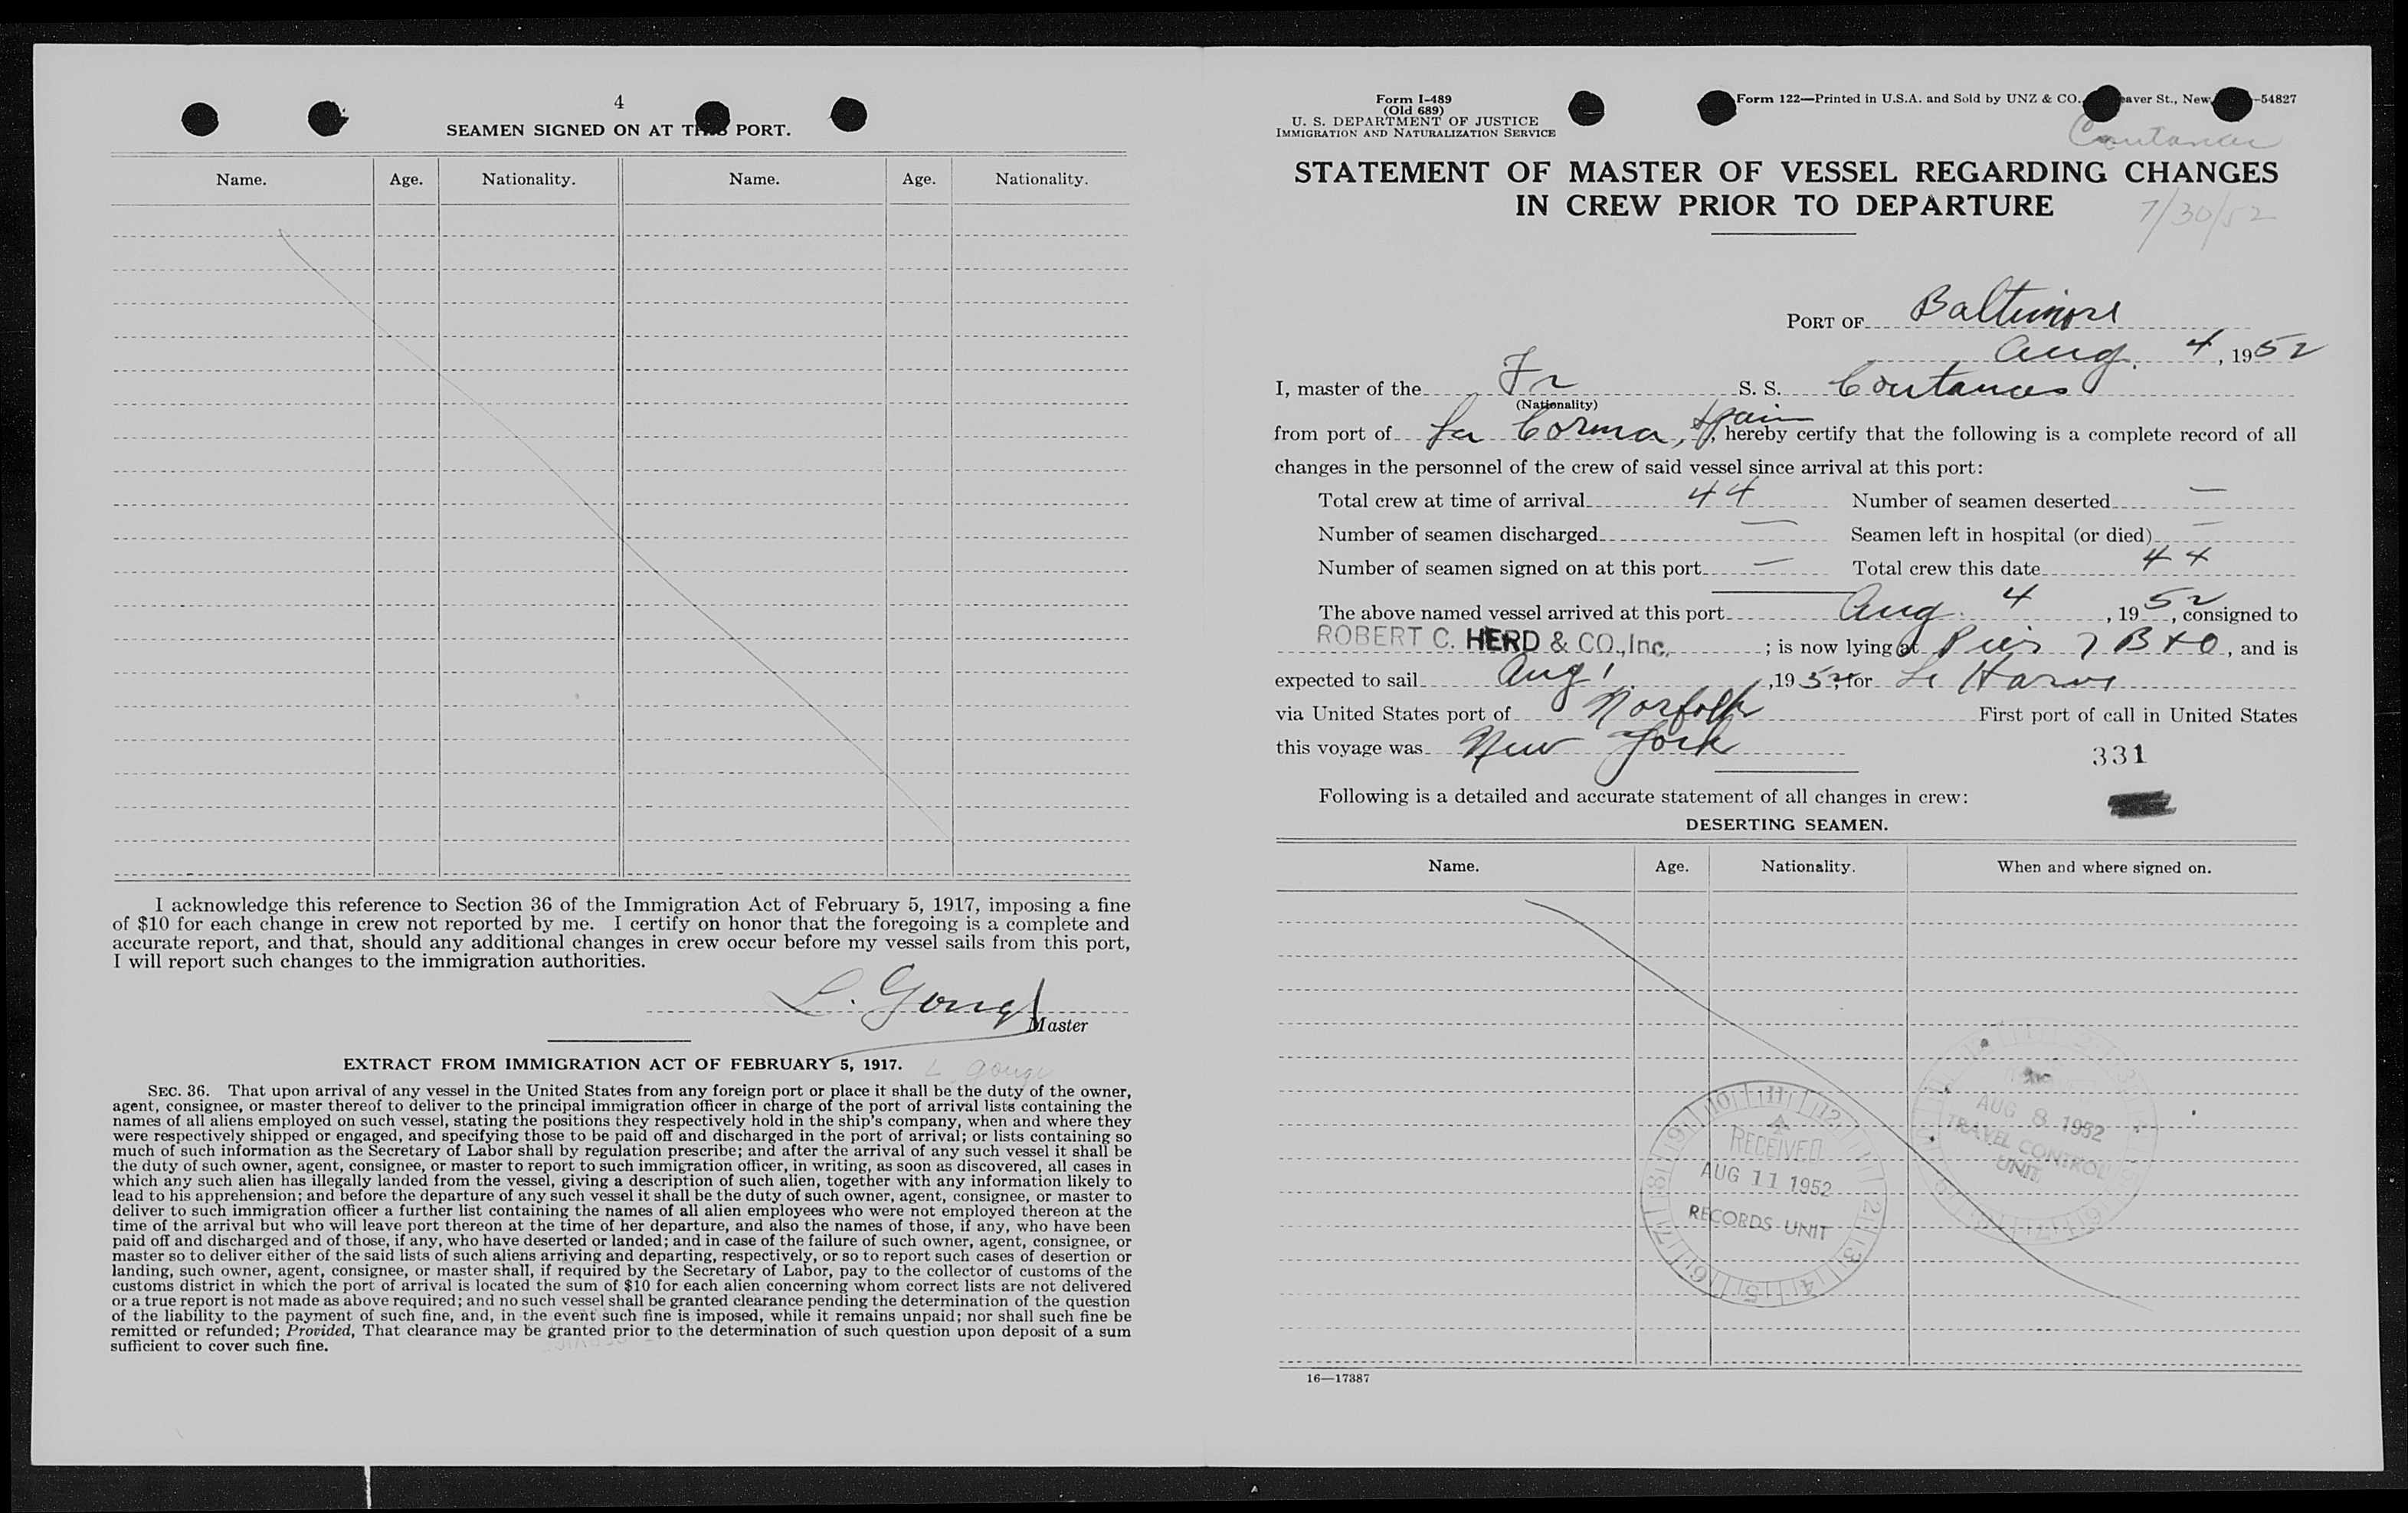 4
SEAMEN SIGNED ON AT THIS PORT.
Name. Age. Nationality. Name. Age. Nationality.
I acknowledge this reference to Section 36 of the Immigration Act of February 5, 1917, imposing a fine
of $10 for each change in crew not reported by me. I certify on honor that the foregoing is a complete and
accurate report, and that, should any additional changes in crew occur before my vessel sails from this port,
I will report such changes to the immigration authorities.
L. Gougy
Master
EXTRACT FROM IMMIGRATION ACT OF FEBRUARY 5, 1917.
SEC. 36. That upon arrival of any vessel in the United States from any foreign port or place it shall be the duty of the owner,
agent, consignee, or master thereof to deliver to the principal immigration officer in charge of the port of arrival lists containing the
names of all aliens employed on such vessel, stating the positions they respectively hold in the ship's company, when and where they
were respectively shipped or engaged, and specifying those to be paid off and discharged in the port of arrival; or lists containing so
much of such information as the Secretary of Labor shall by regulation prescribe; and after the arrival of any such vessel it shall be
the duty of such owner, agent, consignee, or master to report to such immigration officer, in writing, as soon as discovered, all cases in
which any such alien has illegally landed from the vessel, giving a description of such alien, together with any information likely to
lead to his apprehension; and before the departure of any such vessel it shall be the duty of such owner, agent, consignee, or master to
deliver to such immigration officer a further list containing the names of all alien employees who were not employed thereon at the
time of the arrival but who will leave port thereon at the time of her departure, and also the names of those, if any, who have been
paid off and discharged and of those, if any, who have deserted or landed; and in case of the failure of such owner, agent, consignee, or
master so to deliver either of the said lists of such aliens arriving and departing, respectively, or so to report such cases of desertion or
landing, such owner, agent, consignee, or master shall, if required by the Secretary of Labor, pay to the collector of customs of the
customs district in which the port of arrival is located the sum of $10 for each alien concerning whom correct lists are not delivered
or a true report is not made as above required; and no such vessel shall be granted clearance pending the determination of the question
of the liability to the payment of such fine, and, in the event such fine is imposed, while it remains unpaid; nor shall such fine be
remitted or refunded; Provided, That clearance may be granted prior to the determination of such question upon deposit of a sum
sufficient to cover such fine.
Form I-489
(Old 689)
U. S. DEPARTMENT OF JUSTICE
IMMIGRATION AND NATURALIZATION SERVICE
Form 122—Printed in U.S.A. and Sold by UNZ & CO., eaver St., New -54827
Coutances
STATEMENT OF MASTER OF VESSEL REGARDING CHANGES
IN CREW PRIOR TO DEPARTURE
7/30/52
PORT OF Baltimore
Aug. 4, 1952
I, master of the Fr S. S. Coutances
(Nationality)
from port of La Coruna, Spain, hereby certify that the following is a complete record of all
changes in the personnel of the crew of said vessel since arrival at this port:
Total crew at time of arrival 44 Number of seamen deserted —
Number of seamen discharged — Seamen left in hospital (or died) —
Number of seamen signed on at this port — Total crew this date 44
The above named vessel arrived at this port Aug. 4, 1952, consigned to
ROBERT C. HERD & CO., Inc. ; is now lying at Pier 7 B+O, and is
expected to sail Aug , 1952, for Le Havre
via United States port of Norfolk First port of call in United States
this voyage was New York
331
Following is a detailed and accurate statement of all changes in crew:
DESERTING SEAMEN.
Name. Age. Nationality. When and where signed on.
AUG 8 1952
TRAVEL CONTROL
UNIT
RECEIVED
AUG 11 1952
RECORDS UNIT
16—17387